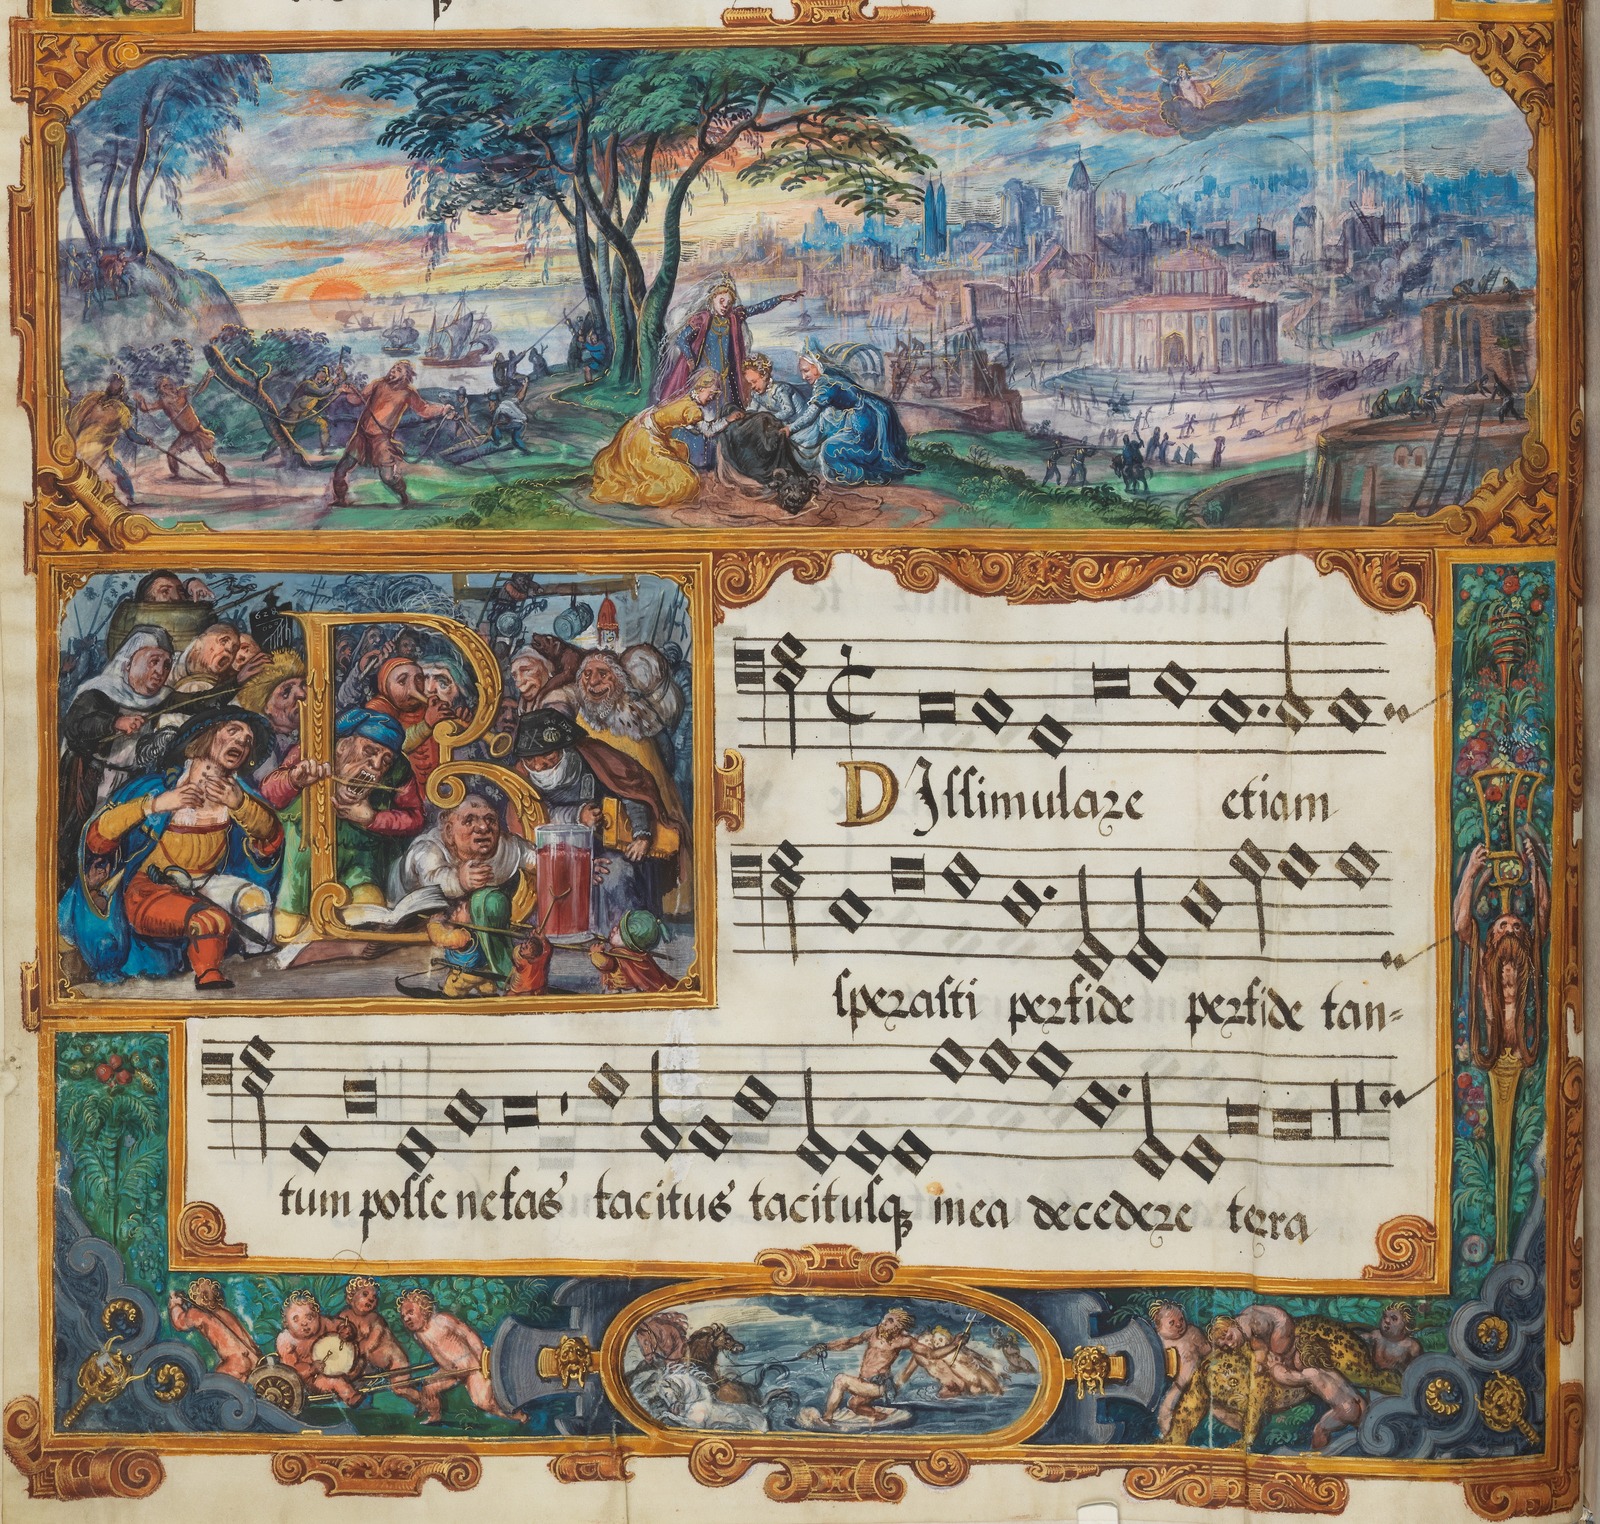 B
DIssimulare etiam
sperasti perfide perfide tan=
tum posse nefas tacitus tacitusqꝫ mea decedere terra